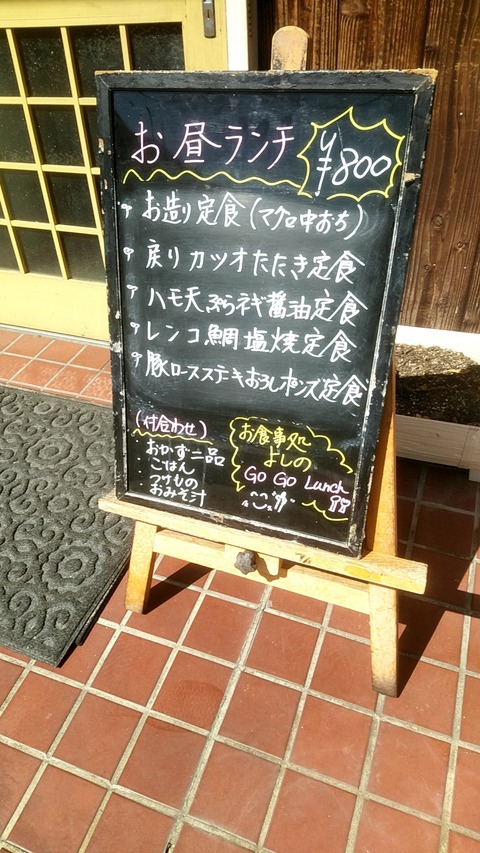 お昼ランチ ¥800
お造り定食(マグロ中おち)
戻りカツオたたき定食
ハモ天ぷらネギ醤油定食
レンコ鯛塩焼定食
豚ロースステーキおろしポンズ定食
(付合わせ)
おかず二品
ごはん
つけもの
おみそ汁
お食事処
よしの
GO GO Lunch